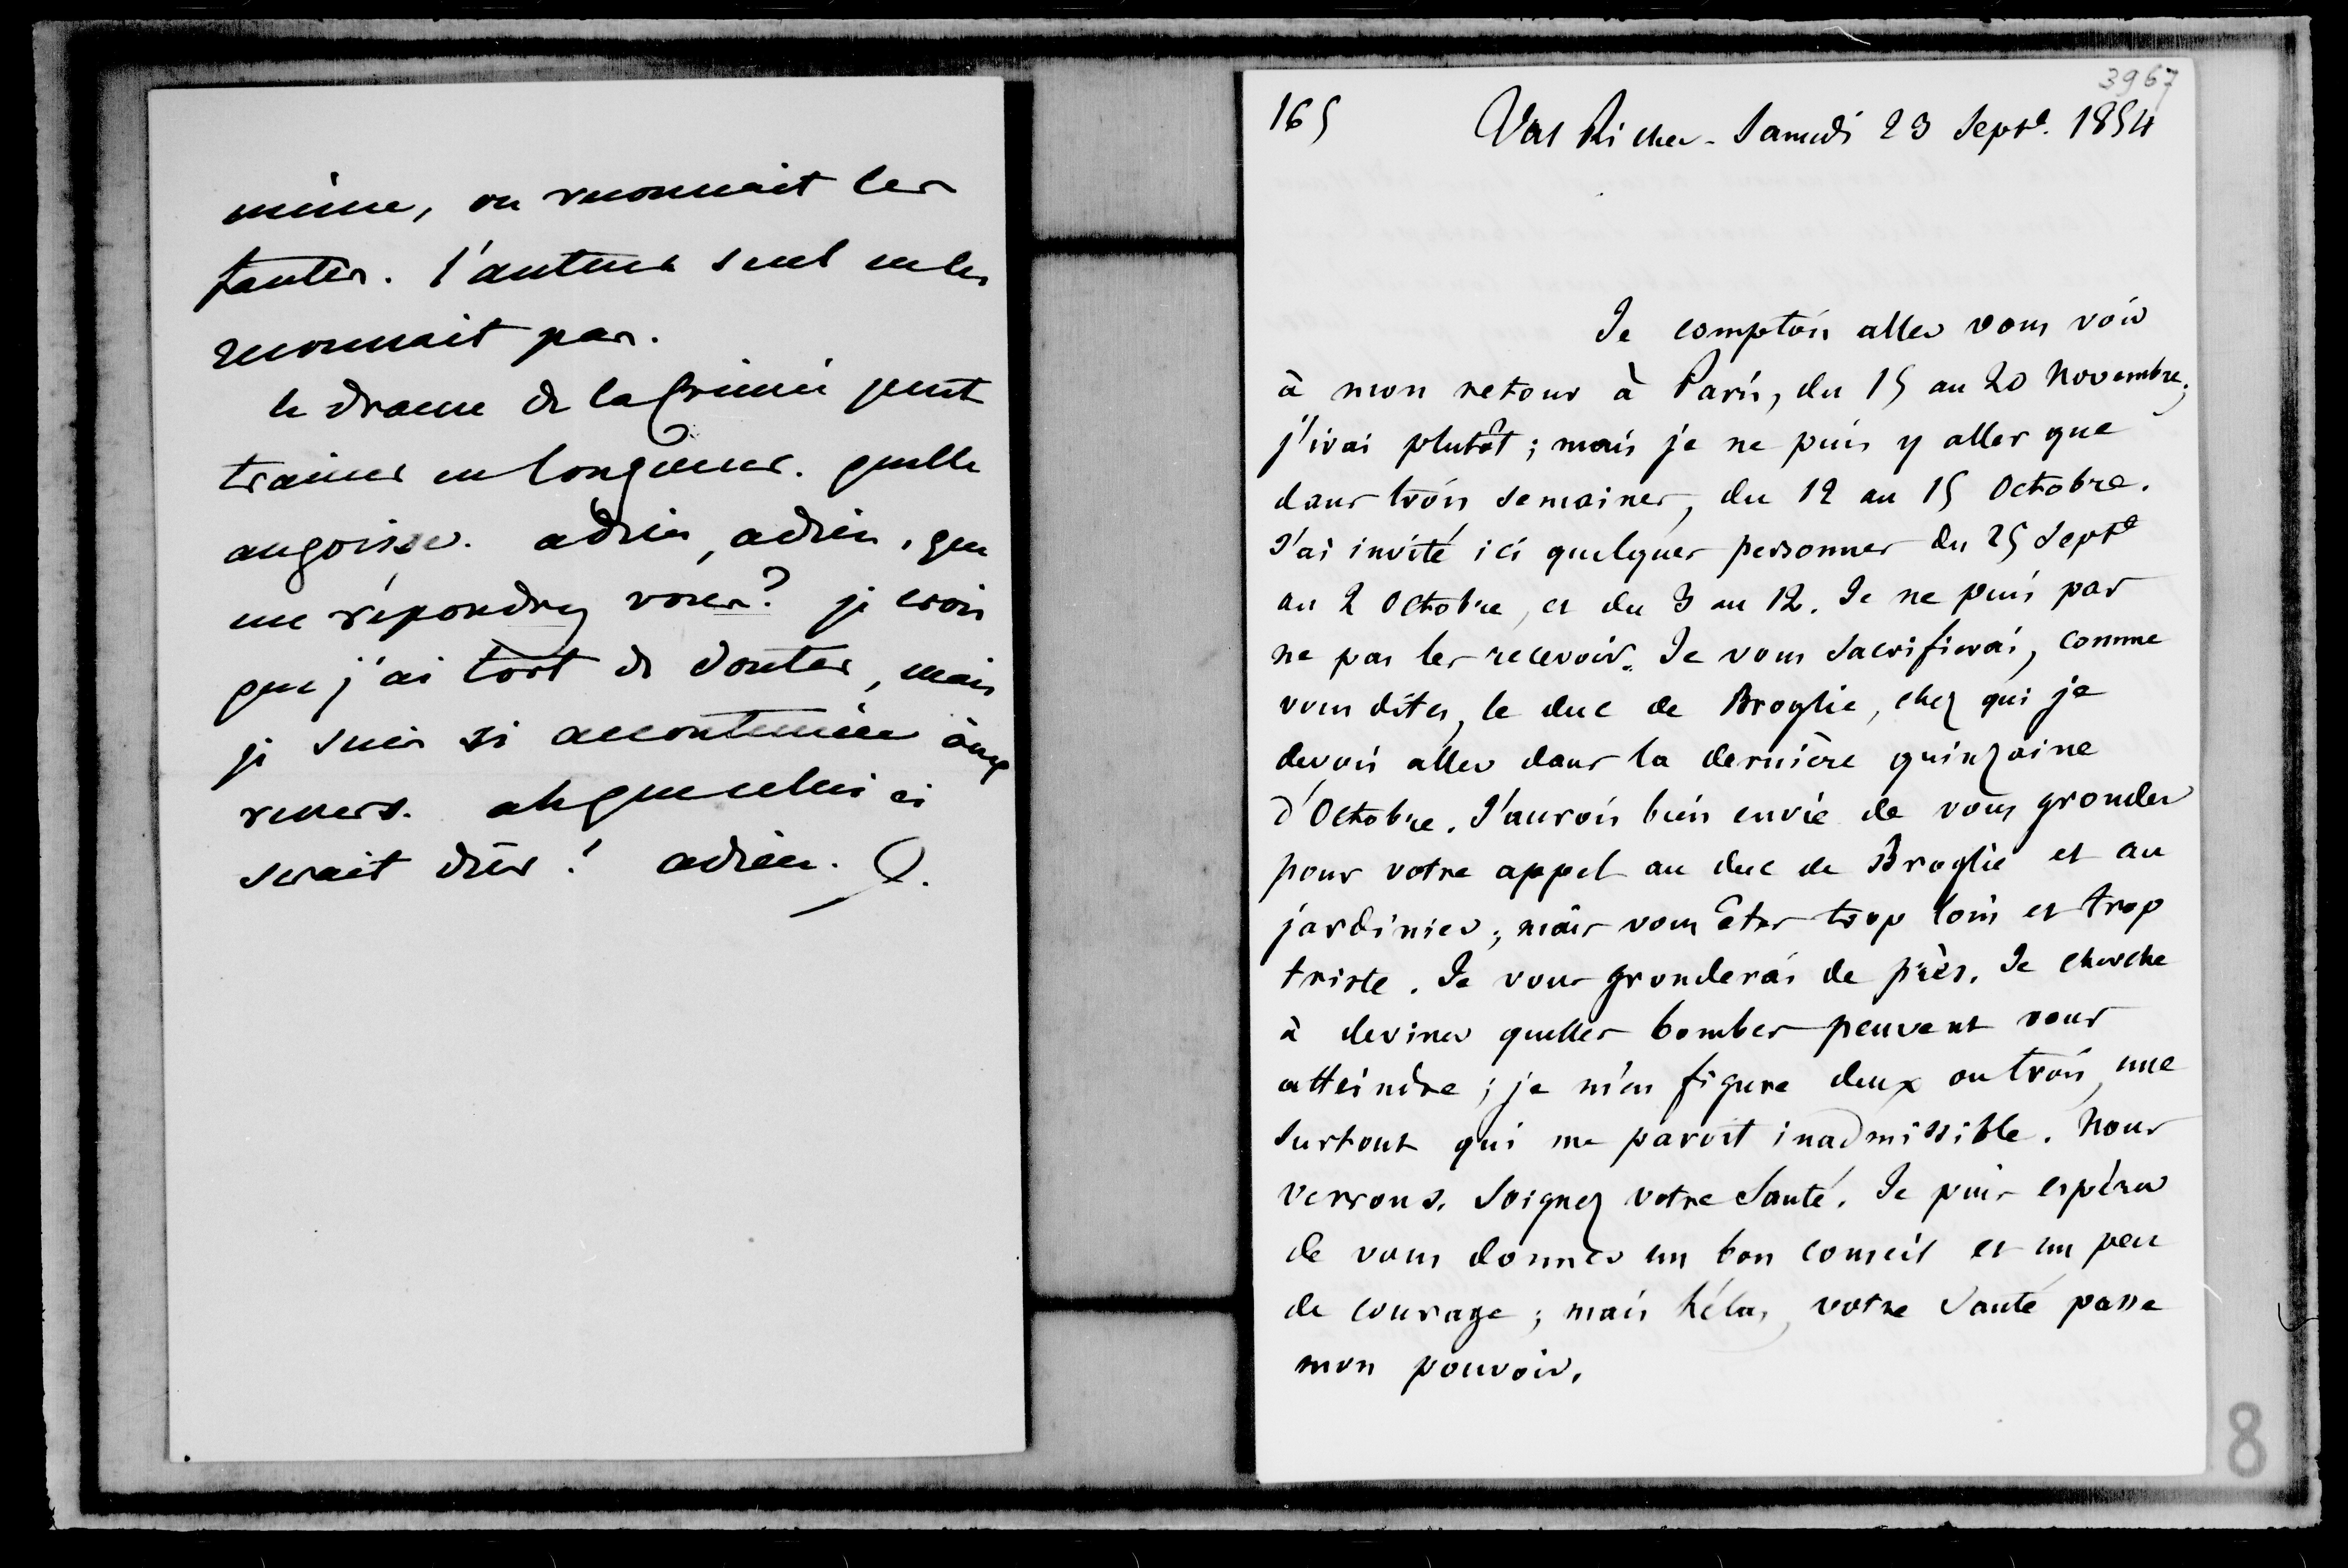 même, on reconnait les
fautes. l'auteur seul ne les
reconnait pas.
le drame de la Crimée peut
trainer en longueur. quelle
angoisse. adieu, adieu, que
me répondrez vous? je crois
que j'ai tort de douter, mais
je suis si accoutumée aux
revers. ah que celui ci
serait dur! adieu.
3967
165
Val Richer - Samedi 23 Septe. 1854
Je comptois aller vous voir
à mon retour à Paris, du 15 au 20 Novembre;
j'irai plutôt; mais je ne puis y aller que
dans trois semaines, du 12 au 15 Octobre.
J'ai invité ici quelques personnes du 25 Septe
au 2 Octobre, et du 3 au 12. Je ne puis pas
ne pas les recevoir. Je vous sacrifierai, comme
vous dites, le duc de Broglie, chez qui je
devois aller dans la dernière quinzaine
d'Octobre. J'aurois bien envie de vous gronder
pour votre appel au duc de Broglie et au
jardinier; mais vous êtes trop loin et trop
triste. Je vous gronderai de près. Je cherche
à deviner quelles bombes peuvent vous
atteindre; je m'en figure deux ou trois, une
surtout qui me paroit inadmissible. Nous
verrons. Soignez votre santé. Je puis espérer
de vous donner un bon conseil et un peu
de courage; mais hélas, votre santé passe
mon pouvoir.
8